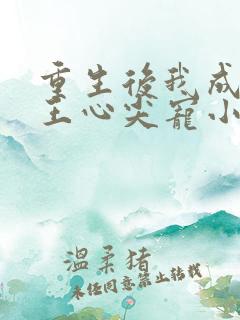 重生後我成
王心尖寵小
溫柔猪
未任同意禁止转载